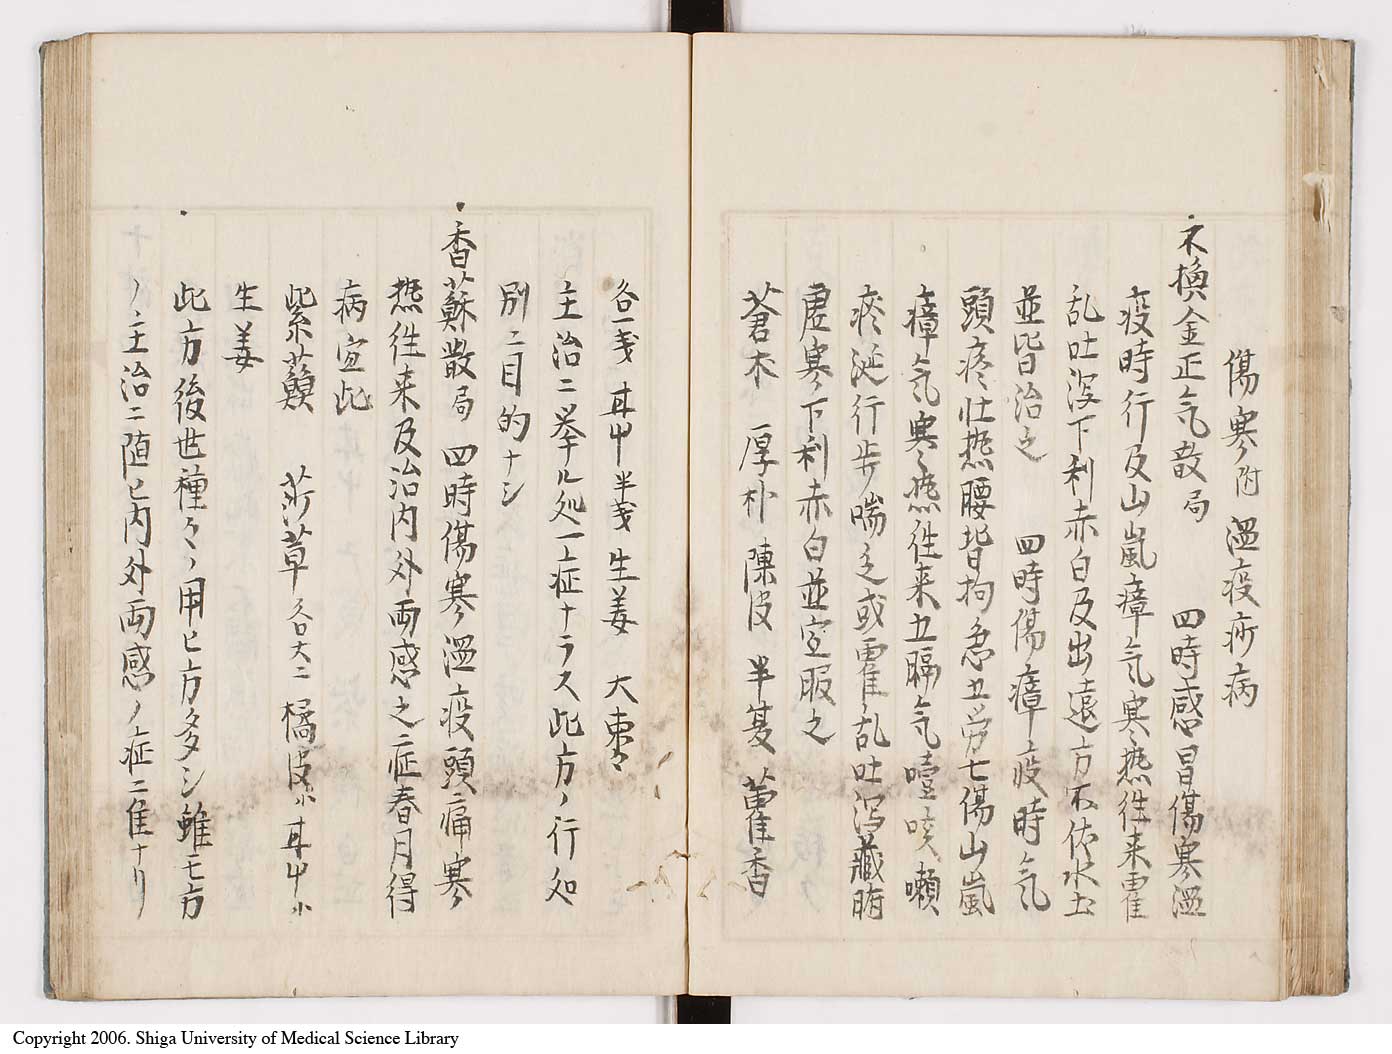 傷寒附温疫痧病
不換金正气散局　四時感冒傷寒温
疫時行及山嵐瘴气寒熱往来霍
乱吐泻下利赤白及出遠方不依水土
並皆治之　四時傷瘴疫時气
頭疼壮熱腰背拘急五労七傷山嵐
瘴气寒熱往来五膈气噎咳嗽
痰涎行歩喘乏或霍乱吐泻蔵腑
虚寒下利赤白並宜服之
蒼朮　厚朴　陳皮　半夏　藿香
各一戔　耳屮半戔　生姜　大棗
主治ニ挙ル処一症ナラス此方ノ行処
別ニ目的ナシ
香蘇散局　四時傷寒温疫頭痛寒
熱往来及治内外両感之症春月得
病宜此
紫蘇　莎草各大二　橘皮小　耳屮小
生姜
此方後世種々ノ用ヒ方多シ雖モ方
ノ主治ニ随ヒ内外両感ノ症ニ隹ナリ
Copyright 2006. Shiga University of Medical Science Library